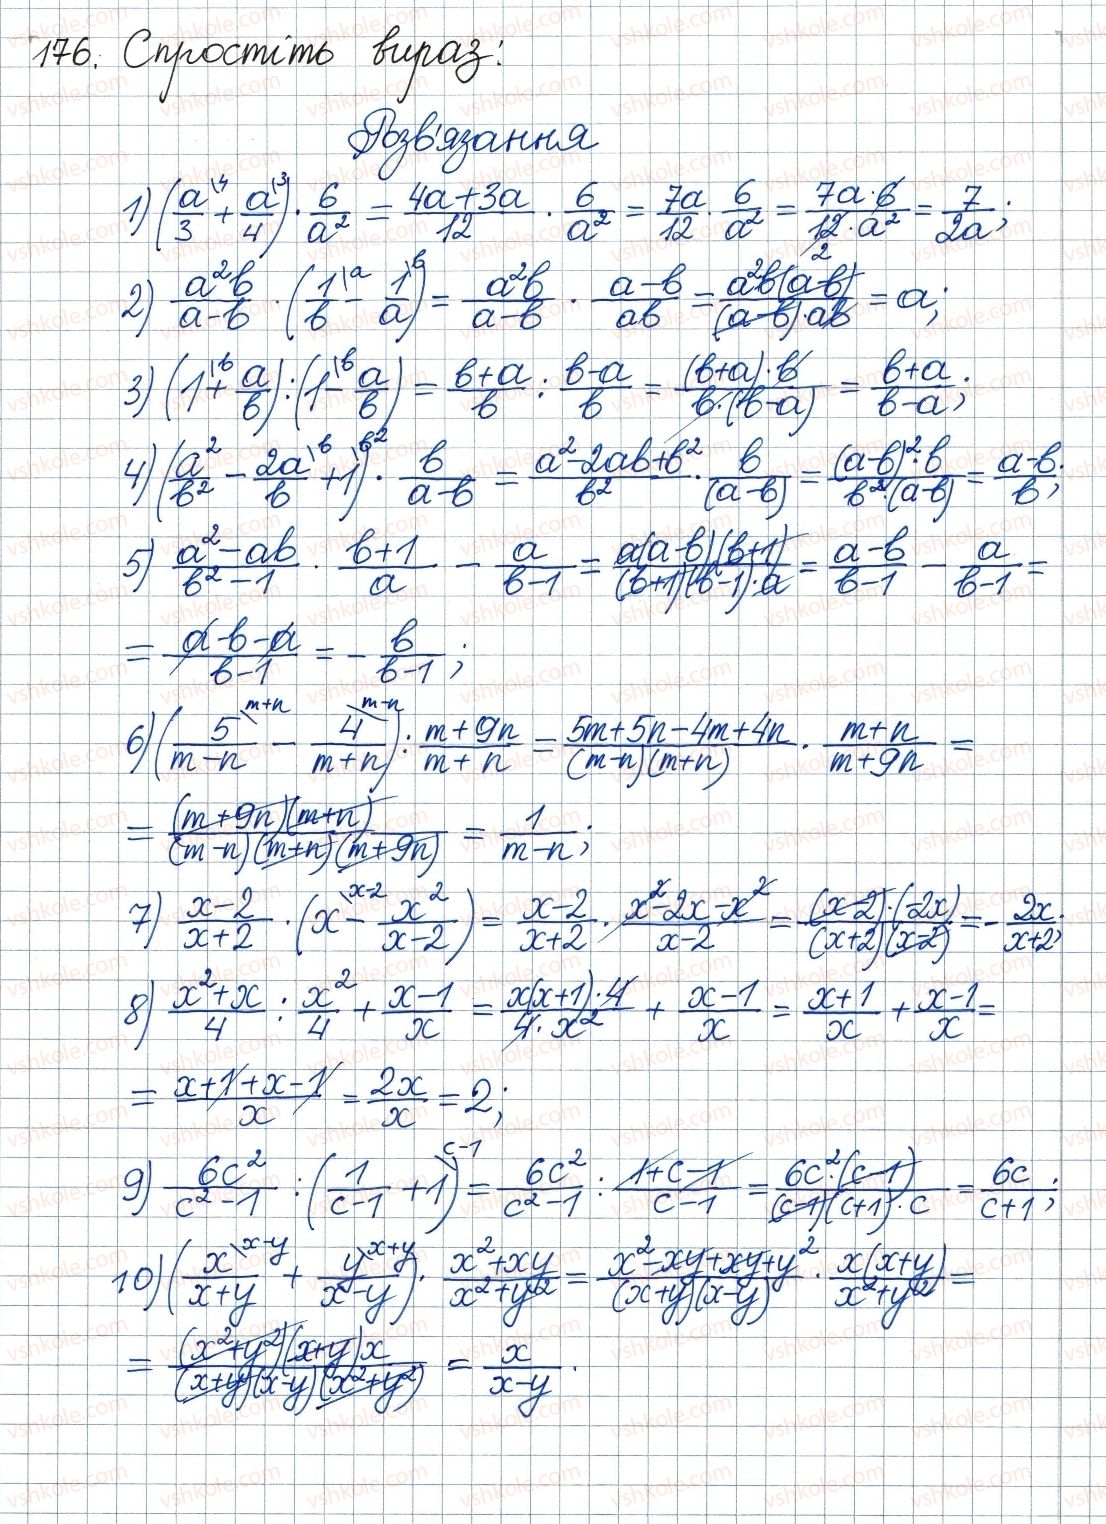 176. Спростіть вираз:
Розв'язання
1) (a\4/3 + a\3/4) · 6/a² = (4a+3a)/12 · 6/a² = 7a/12 · 6/a² = (7a·6)/(12·a²) = 7/2a;
2) a²b/(a-b) · (1\a/b - 1\b/a) = a²b/(a-b) · (a-b)/ab = a²b(a-b)/((a-b)·ab) = a;
3) (1\b + a/b) : (1\b - a/b) = (b+a)/b : (b-a)/b = ((b+a)·b)/(b·(b-a)) = (b+a)/(b-a);
4) (a²/b² - 2a\b/b + 1\b²) · b/(a-b) = (a²-2ab+b²)/b² · b/(a-b) = ((a-b)²·b)/(b²·(a-b)) = (a-b)/b;
5) (a²-ab)/(b²-1) · (b+1)/a - a/(b-1) = a(a-b)(b+1)/((b+1)(b-1)·a) = (a-b)/(b-1) - a/(b-1) =
= (a-b-a)/(b-1) = - b/(b-1);
6) (5\m+n/(m-n) - 4\m-n/(m+n)) : (m+9n)/(m+n) = (5m+5n-4m+4n)/((m-n)(m+n)) · (m+n)/(m+9n) =
= (m+9n)(m+n)/((m-n)(m+n)(m+9n)) = 1/(m-n);
7) (x-2)/(x+2) · (x\x-2 - x²/(x-2)) = (x-2)/(x+2) · (x²-2x-x²)/(x-2) = (x-2)·(-2x)/((x+2)(x-2)) = - 2x/(x+2);
8) (x²+x)/4 : x²/4 + (x-1)/x = x(x+1)·4/(4·x²) + (x-1)/x = (x+1)/x + (x-1)/x =
= (x+1+x-1)/x = 2x/x = 2;
9) 6c²/(c²-1) : (1/(c-1) + 1\c-1) = 6c²/(c²-1) : (1+c-1)/(c-1) = 6c²·(c-1)/((c-1)(c+1)·c) = 6c/(c+1);
10) (x\x-y/(x+y) + y\x+y/(x-y)) · (x²+xy)/(x²+y²) = (x²-xy+xy+y²)/((x+y)(x-y)) · x(x+y)/(x²+y²) =
= (x²+y²)(x+y)x/((x+y)(x-y)(x²+y²)) = x/(x-y).
vshkole.com